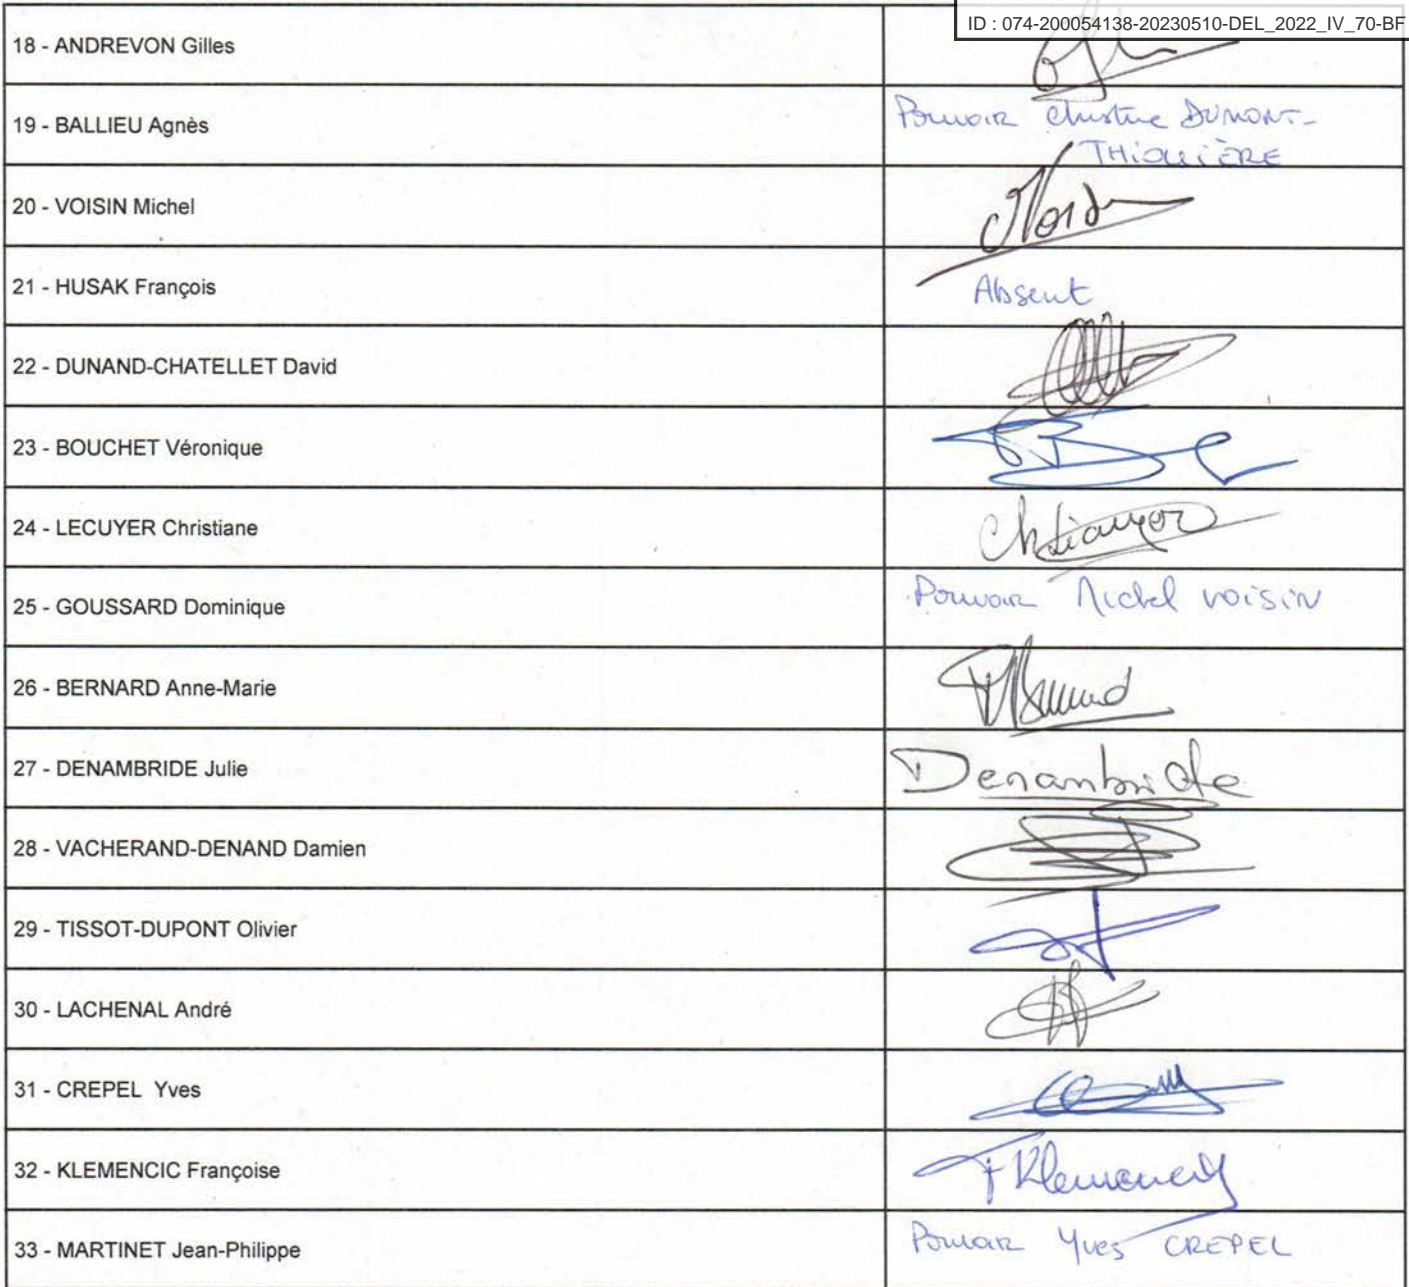 ID : 074-200054138-20230510-DEL_2022_IV_70-BF
18 - ANDREVON Gilles
19 - BALLIEU Agnès
Pouvoir Christine DUMONT-
THIOLLIÈRE
20 - VOISIN Michel
21 - HUSAK François
Absent
22 - DUNAND-CHATELLET David
23 - BOUCHET Véronique
24 - LECUYER Christiane
25 - GOUSSARD Dominique
Pouvoir Michel VOISIN
26 - BERNARD Anne-Marie
27 - DENAMBRIDE Julie
Denambride
28 - VACHERAND-DENAND Damien
29 - TISSOT-DUPONT Olivier
30 - LACHENAL André
31 - CREPEL Yves
32 - KLEMENCIC Françoise
F Klemencic
33 - MARTINET Jean-Philippe
Pouvoir Yves CREPEL